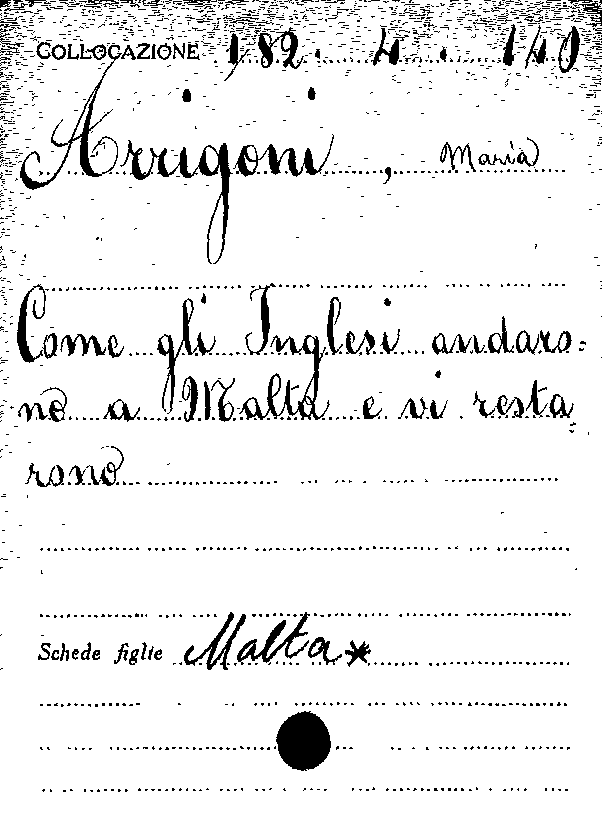 COLLOCAZIONE 182. 4. 140
Arrigoni, Maria
Come gli Inglesi andaro=
no a Malta e vi resta=
rono
Schede figlie Malta*